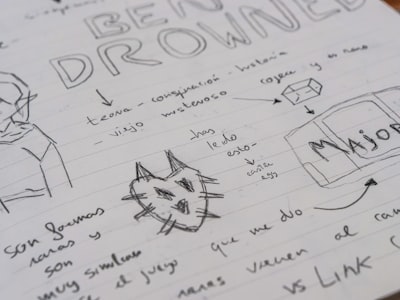 BEN
DROWNED
teoria - conspiración - historia
- viejo misterioso
cogea y es raro
- has
leído
esto -
easter
egg
MAJOR
son formas
raras y
son
muy similares
el juego
que me dio
raras vienen al
vs LINK